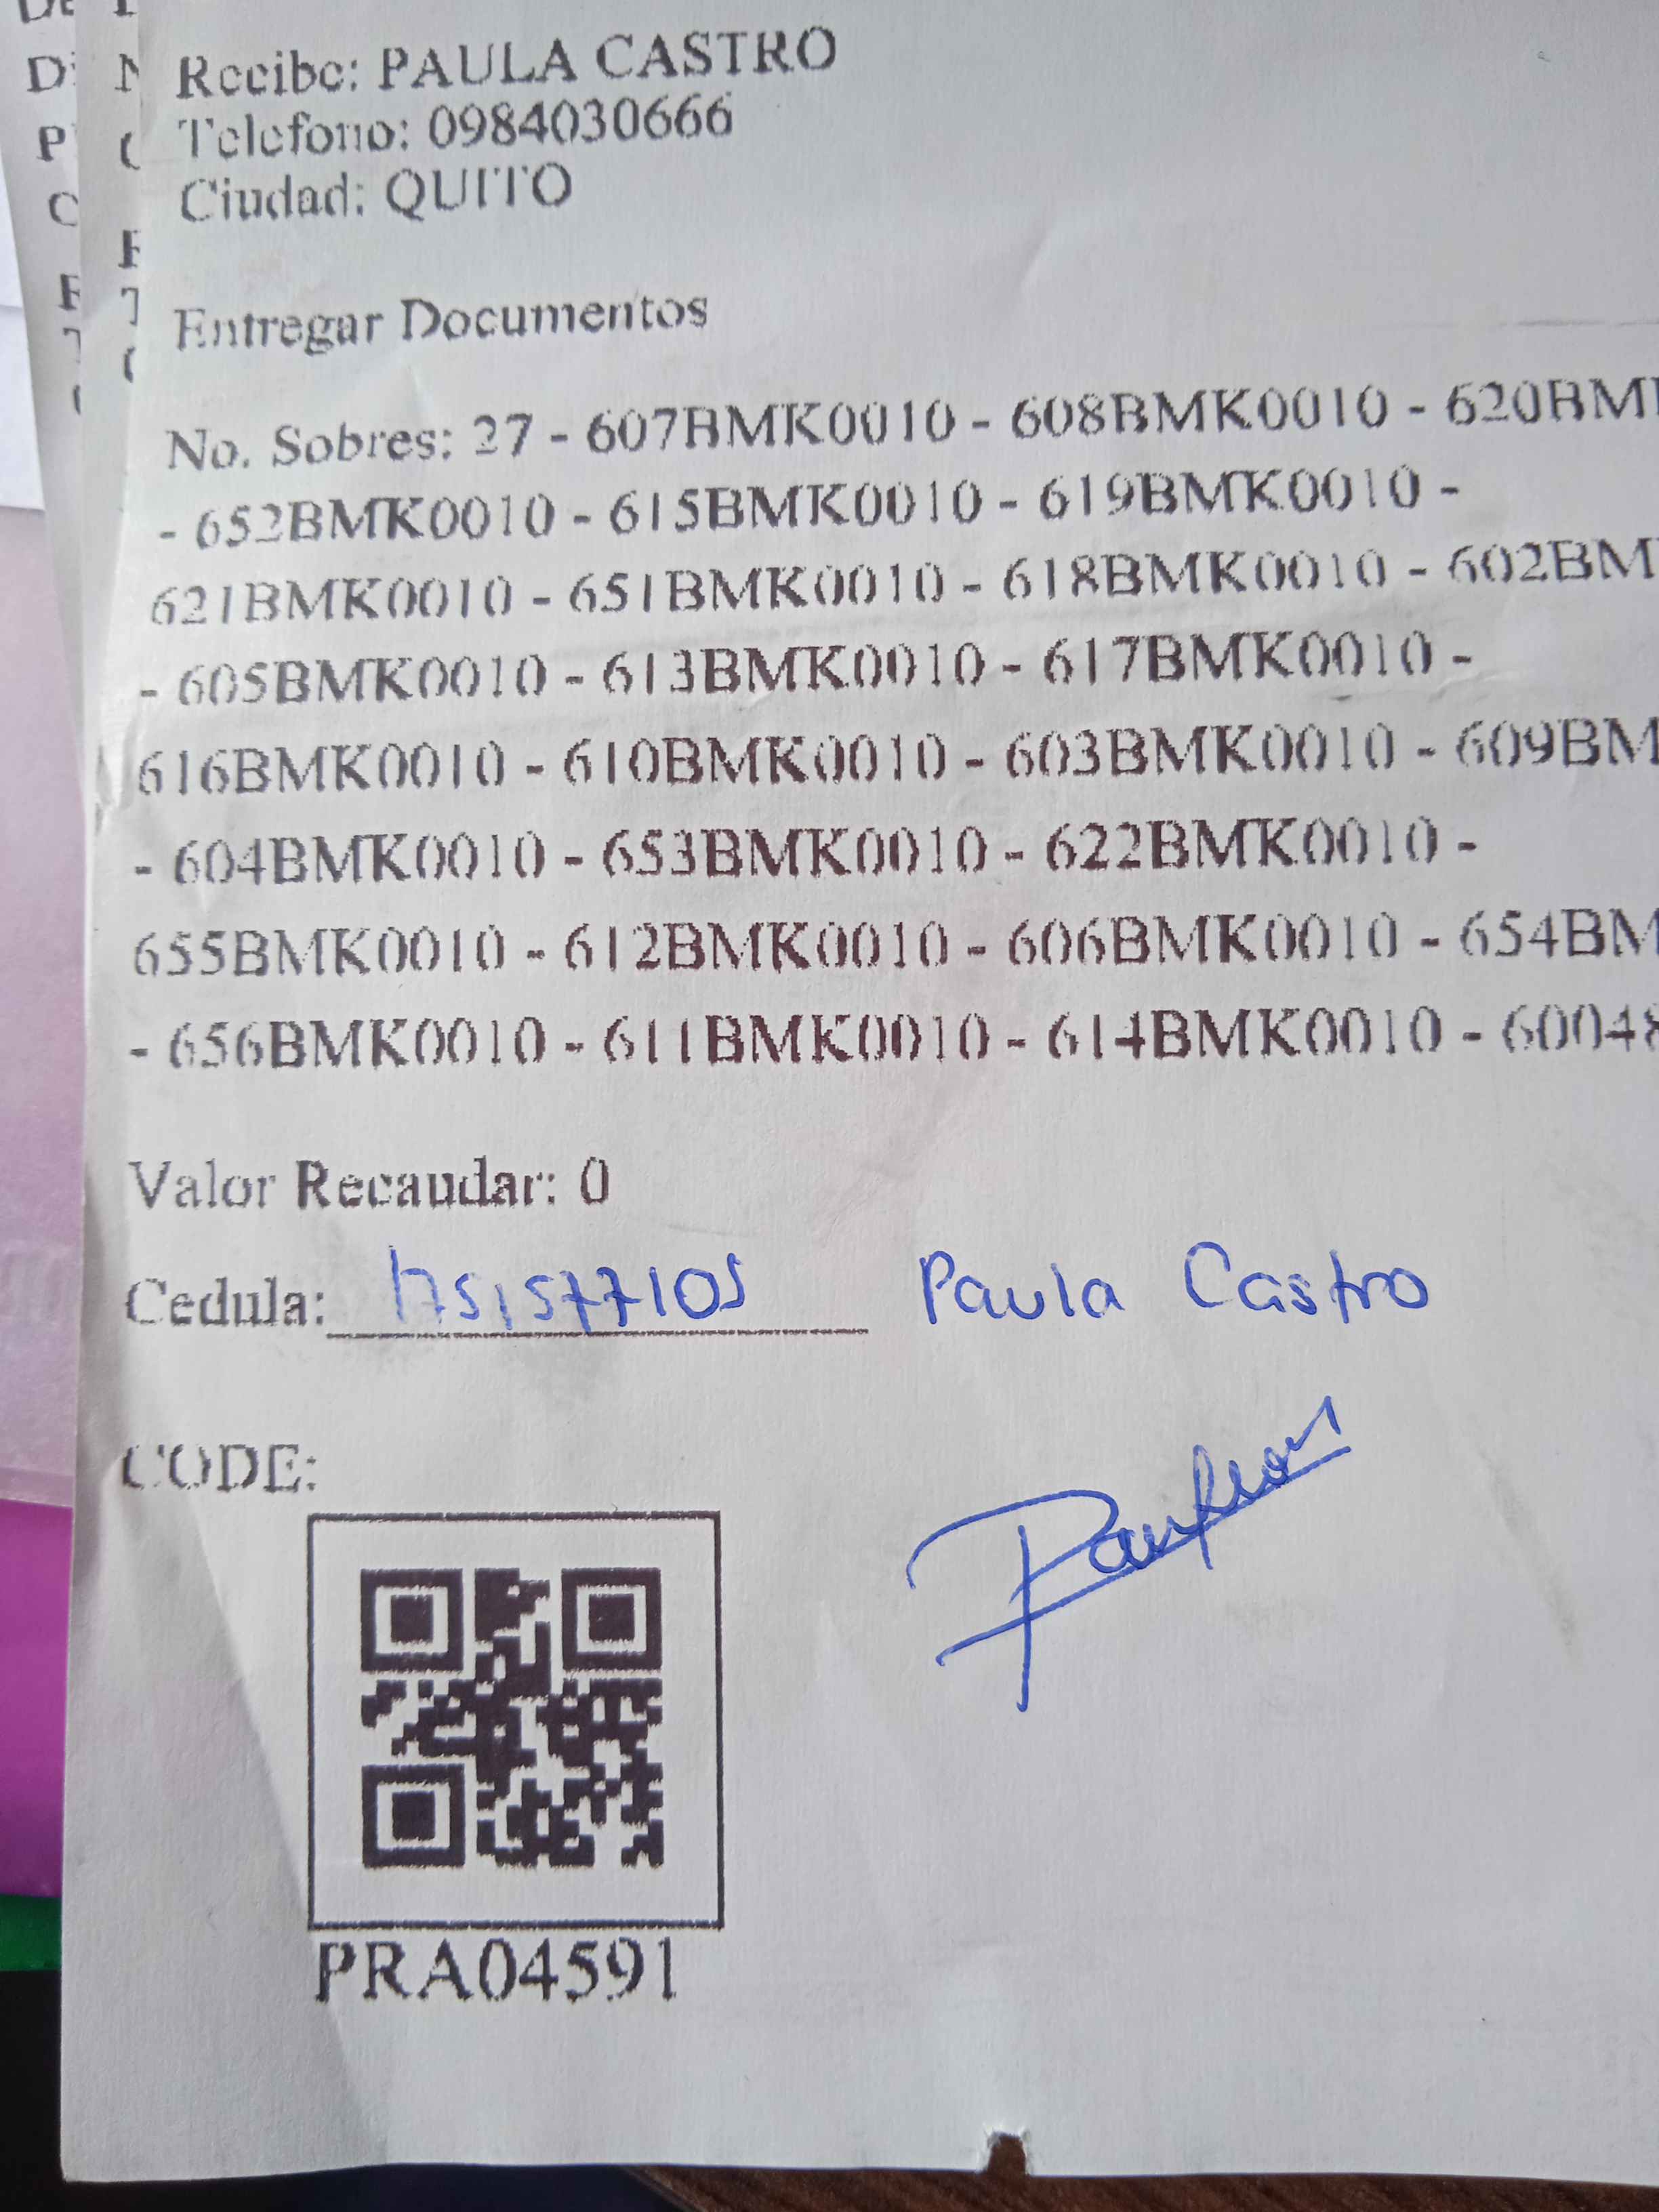 Recibe: PAULA CASTRO
Telefono: 0984030666
Ciudad: QUITO
Entregar Documentos
No. Sobres: 27 - 607BMK0010 - 608BMK0010 - 620BM
- 652BMK0010 - 615BMK0010 - 619BMK0010 -
621BMK0010 - 651BMK0010 - 618BMK0010 - 602BM
- 605BMK0010 - 613BMK0010 - 617BMK0010 -
616BMK0010 - 610BMK0010 - 603BMK0010 - 609BM
- 604BMK0010 - 653BMK0010 - 622BMK0010 -
655BMK0010 - 612BMK0010 - 606BMK0010 - 654BM
- 656BMK0010 - 611BMK0010 - 614BMK0010 - 60048
Valor Recaudar: 0
Cedula: 1751577105 Paula Castro
CODE:
PRA04591